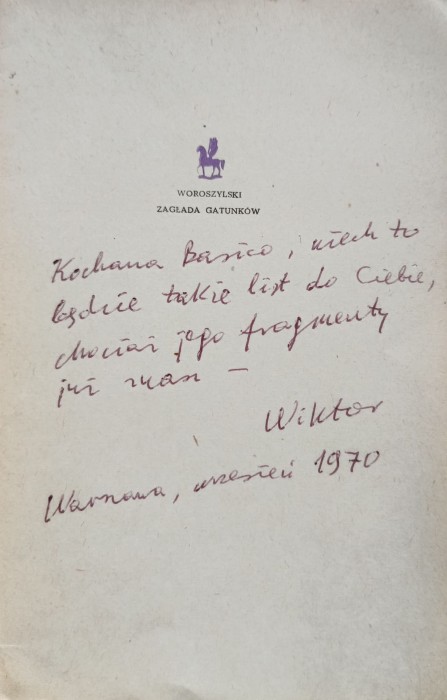 WOROSZYLSKI
ZAGŁADA GATUNKÓW
Kochana Basico, niech to
będzie także list do Ciebie,
chociaż jego fragmenty
już znasz –
Wiktor
Warszawa, wrzesień 1970